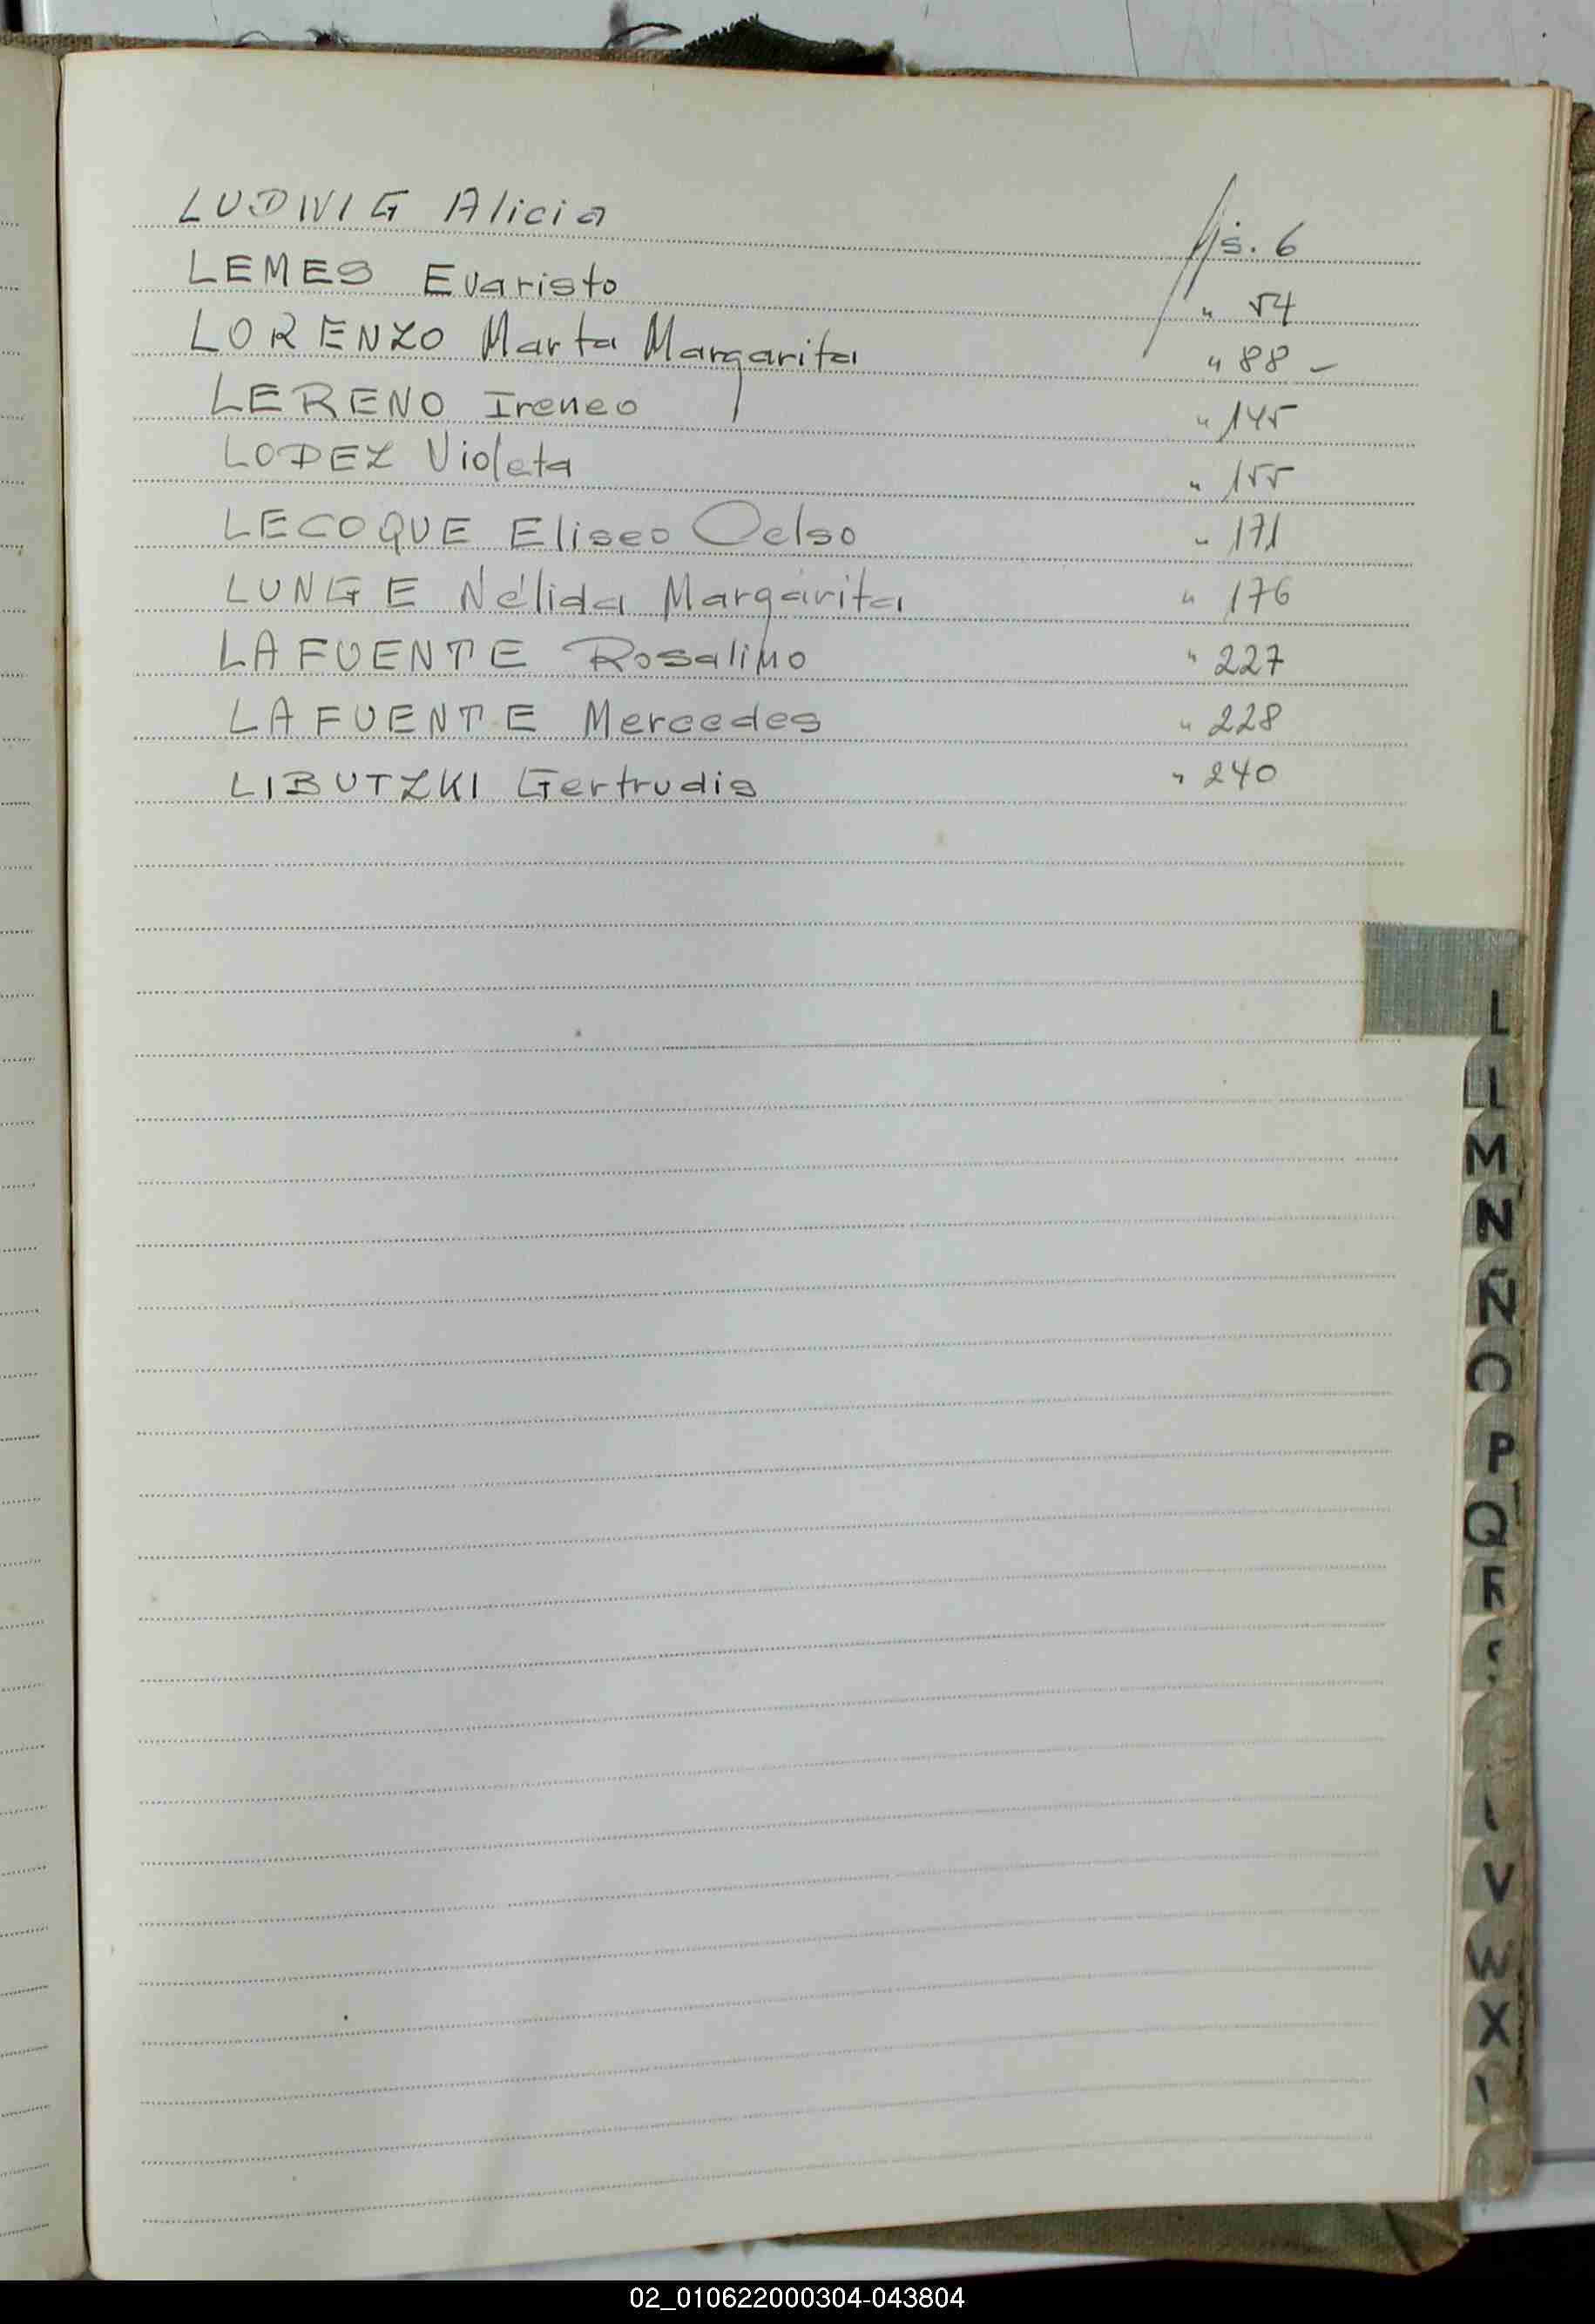 LUDWIG Alicia fjs. 6
LEMES Evaristo " 54
LORENZO Marta Margarita " 88 -
LERENO Ireneo " 145
LOPEZ Violeta " 155
LECOQUE Eliseo Celso " 171
LUNGE Nélida Margarita " 176
LAFUENTE Rosalino " 227
LAFUENTE Mercedes " 228
LIBUTZKI Gertrudis " 240
L
L
M
N
Ñ
O
P
Q
R
S
V
W
X
02_010622000304-043804